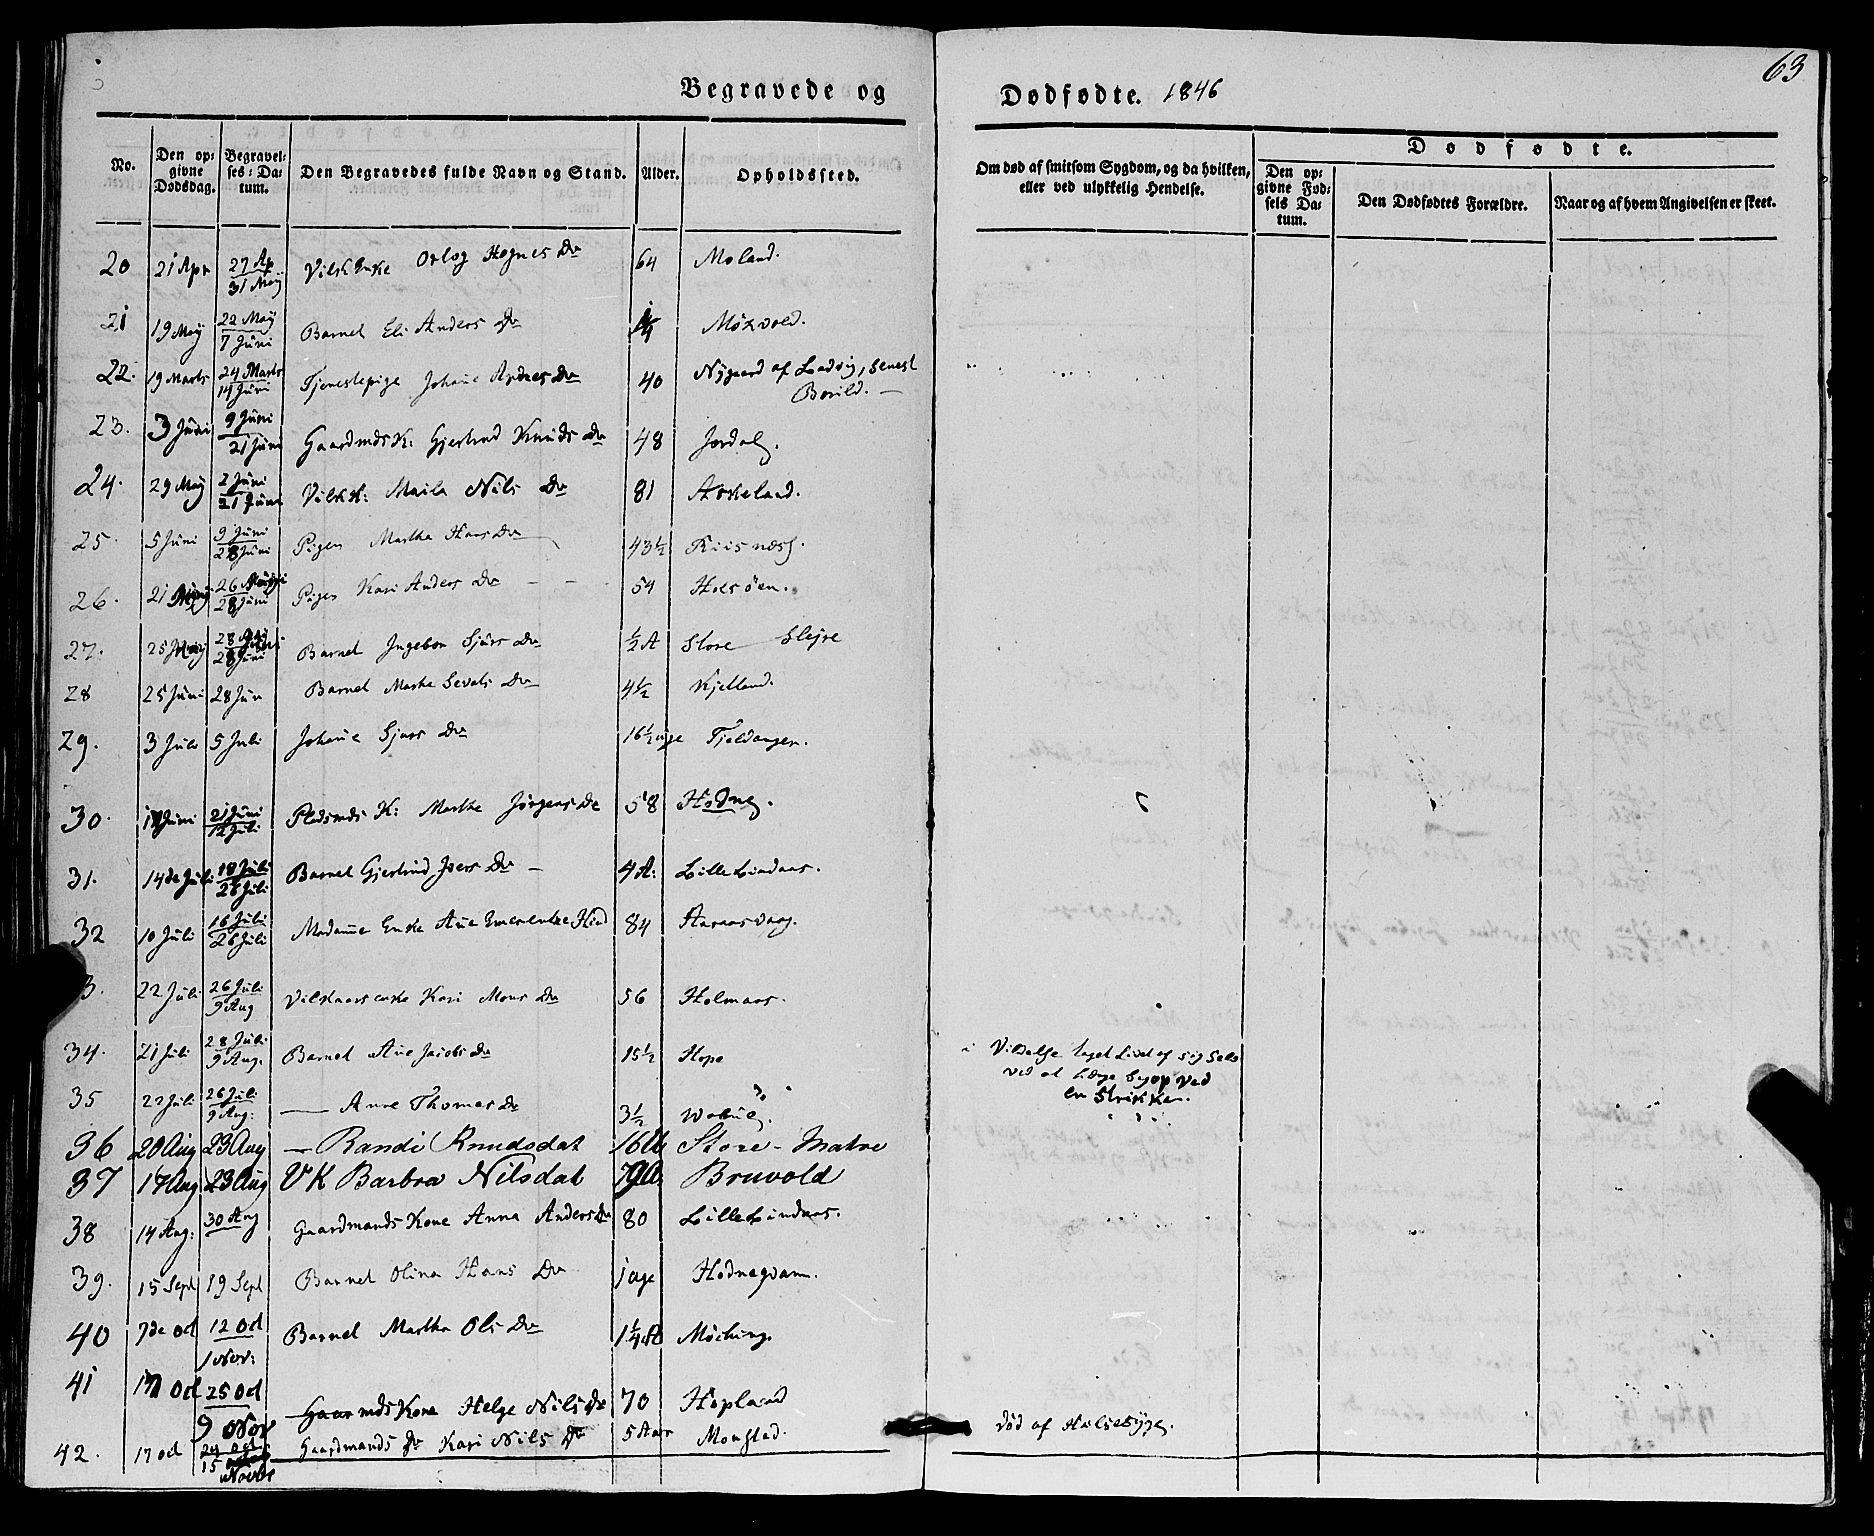 63
Begravede og Dødfødte. 1846
No.
Den opgivne Dødsdag.
Begravelses-Datum.
Den Begravedes fulde Navn og Stand.
Alder.
Opholdssted.
Om død af smitsom Sygdom, og da hvilken, eller ved ulykkelig Hendelse.
Dødfødte.
Den opgivne Fødsels Datum.
Den Dødfødtes Forældre.
Naar og af hvem Angivelsen er skeet.
20 21 Apr 27 Ap 31 May Vilsk Enke Orlog Hognes Dr 64 Moland.
21 19 May 22 May 7 Juni Barnet Eli Anders Dr Møxvold.
22. 19 Marts 24 Marts 14 Juni Tjenestepige Johane Andres Dr 40 Nygaard af Ladvig, senest
Børild.
23. 3 Juni 9 Juni 21 Juni Gaardmds K: Gjertrud Knuds Dr 48 Jordal.
24. 29 May 2 Juni 21 Juni Vilkk: Marta Nils Dr 81 Askeland.
25. 5 Juni 9 Juni 28 Juni Pigen Martha Hans Dr 43½ Riisnæs.
26. 21 26 28 Juni Pigen Kari Anders Dr 54 Holsöen.
27. 25 28 28 Juni Barnet Ingebor Sjurs Dr ½ A Store Slejre
28 25 Juni 28 Jun Barnet Marta Sevats Dr 4½ Kjelland.
29. 3 Juli 5 Juli Johane Sjurs Dr 16½ uge Tjeldanger.
30. Juni 21 Juni 12 Juli Pladsmds K: Martha Jørgens Dr 58 Hodne.
31. 14de Juli 18 Juli 26 Juli Barnet Gjertrud Ivers Dr 4 A: Lille Lindaas.
32 10 Juli 16 Juli 26 Juli Madame Enke Ane Emerentze Hind 84 Aaraasvaag.
3. 22 Juli 26 Juli 9 Aug Vilkaarsenke Kari Mons Dr 56 Holmaas.
34. 21 Juli 28 Juli 9 Aug. Barnet Ane Jacobs Dr 15½ Hope i Vildelse taget Livet af sig Selv
ved at hænge sig op ved
en Strikke.
35 22 Juli 26 Juli 9 Aug: — Anne Thomas Dr 3½
36 20 Aug 23 Aug — Randi Knudsdat Store-Matre
37 17 Aug 23 Aug VK Barbra Nilsdat 79 Bruvold
38 14 Aug: 30 Aug Gaardmands Kone Anna Anders Dr 80 Lille Lindaas.
39. 15 Sept 19 Sept Barnet Olina Hans Dr Hodnegvam.
40 7de Oct 12 Oct 1 Nov: Barnet Martha Ols Dr 1¼ A Møching.
41 Oct 25 Oct 9 Nov Gaarmds Kone Helge Nils Dr 70 Hopland
42. 17 Oct 24 Oct 15 Novbr Gaardmands Dr Kari Nils Dr 5 Aar Monstad. død af Halsesyge.